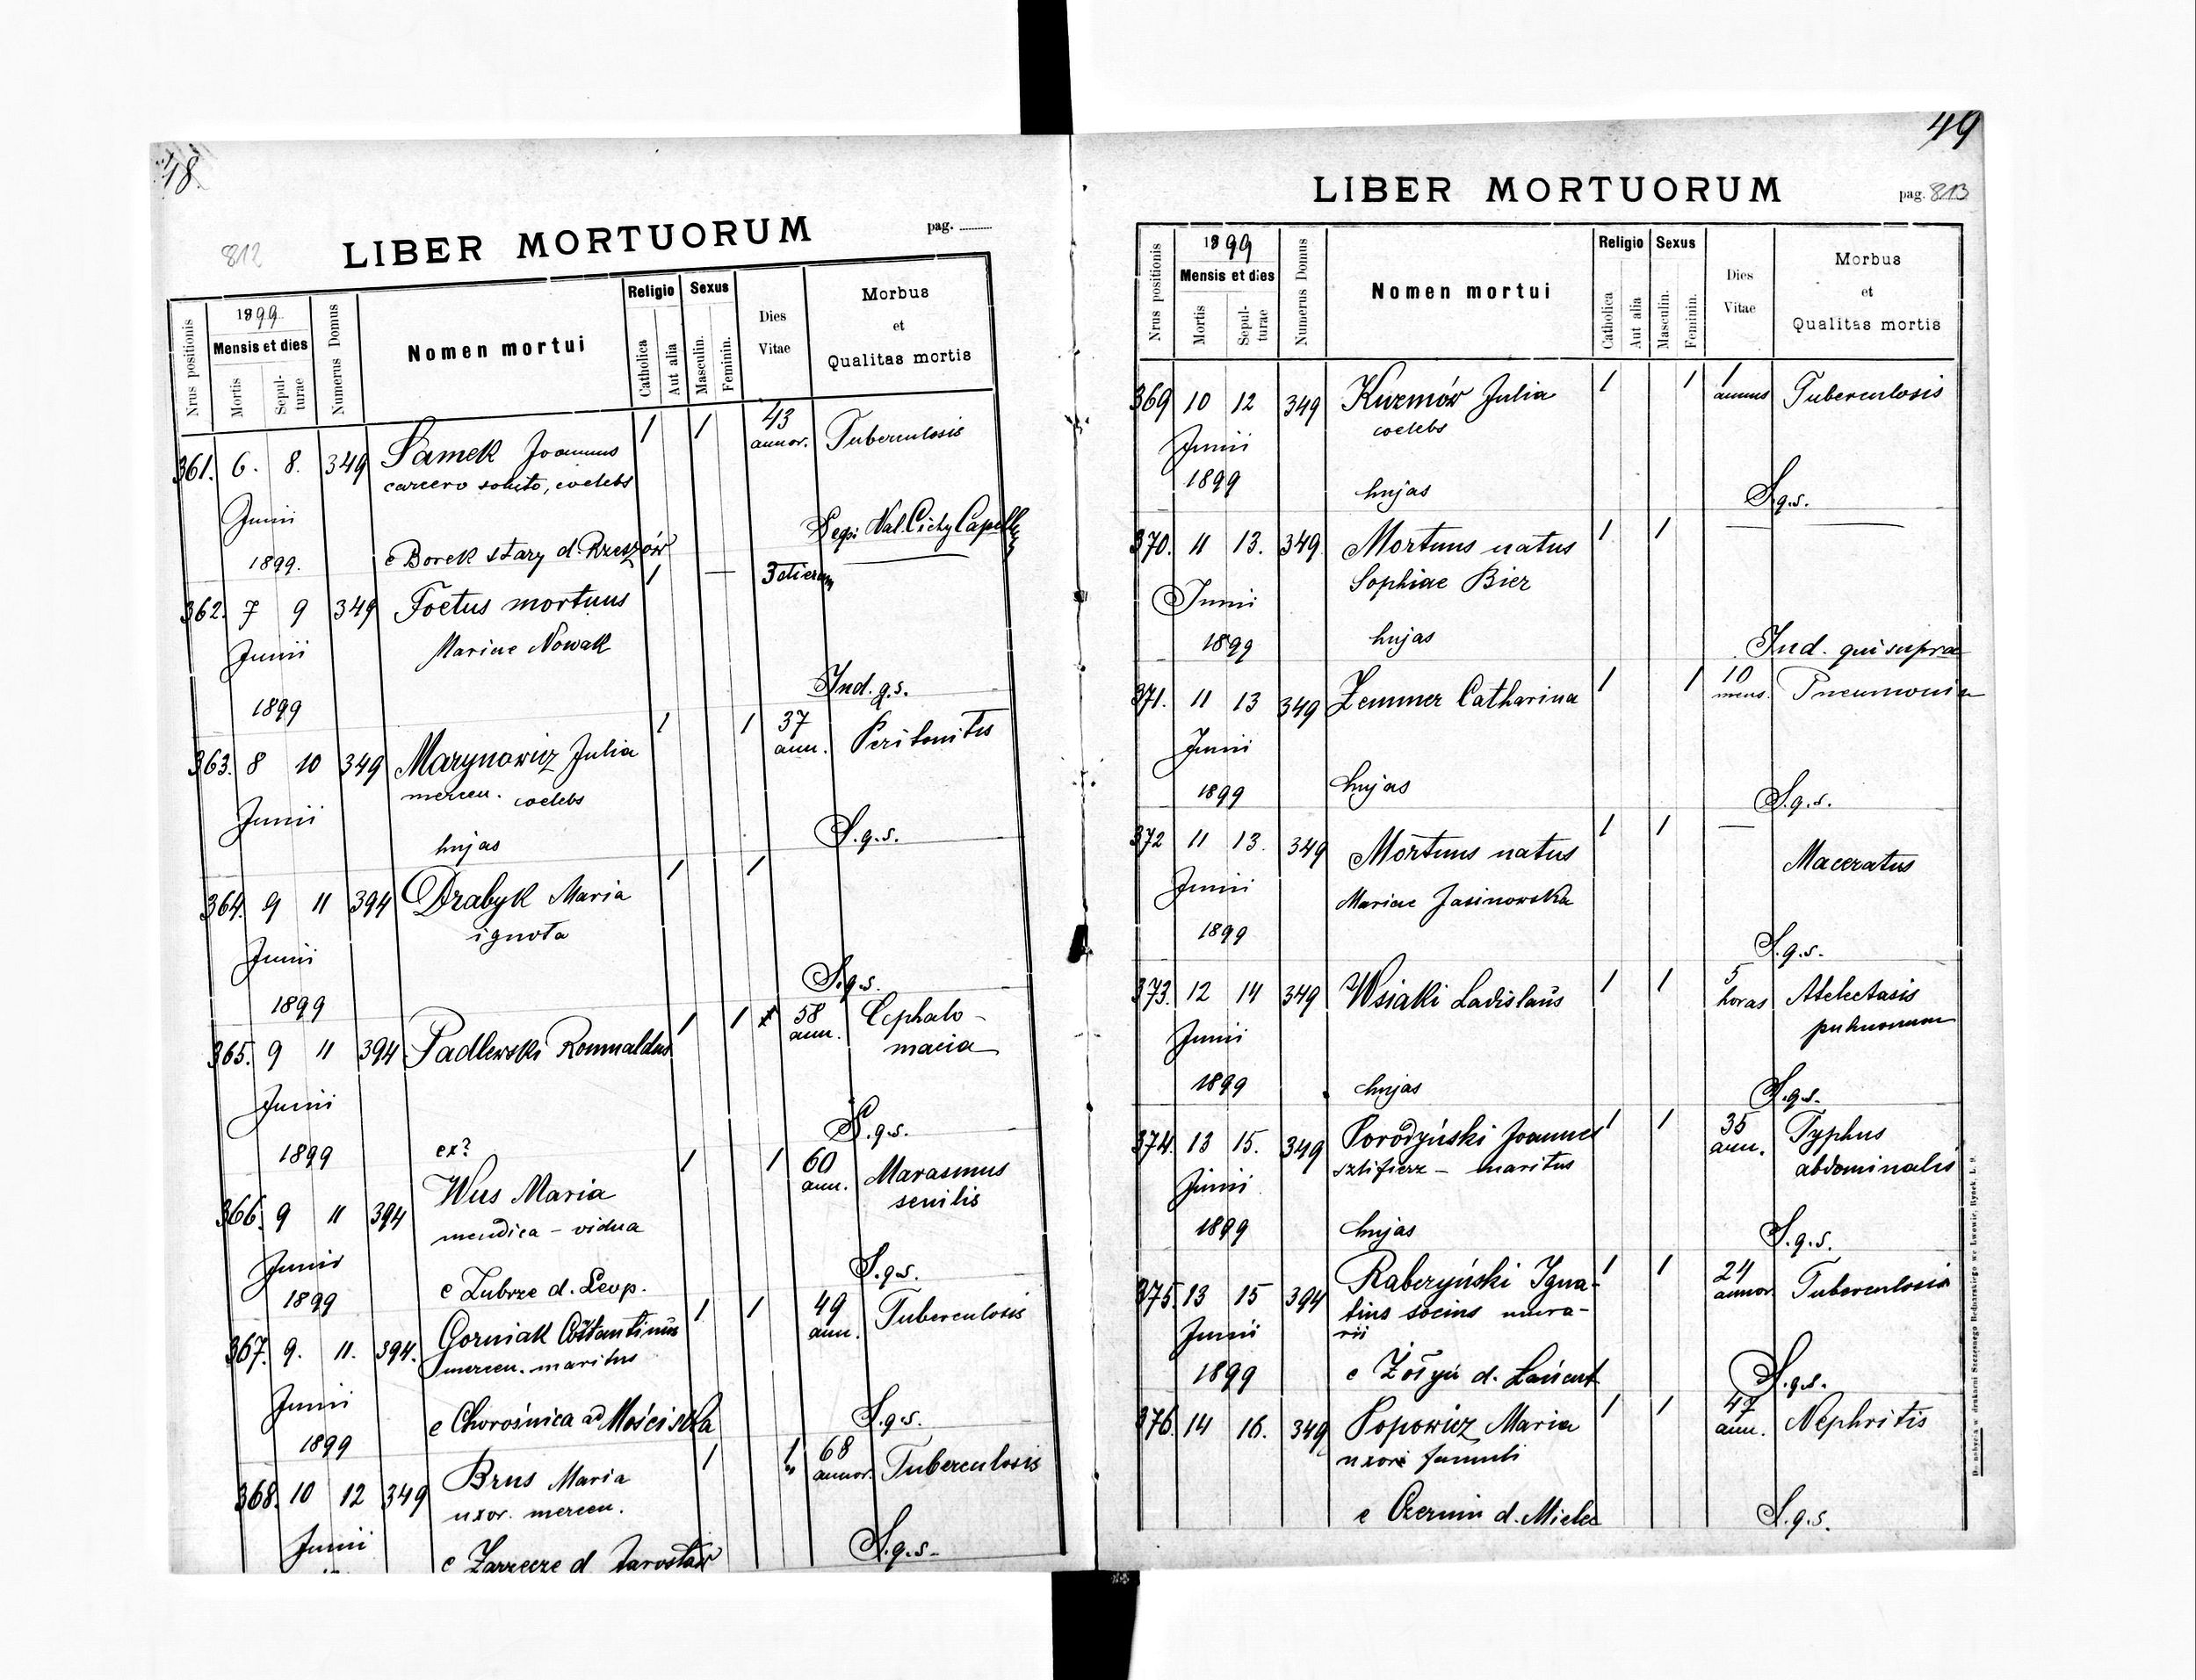 48
812
LIBER MORTUORUM
pag.
Nrus positionis
1899
Mensis et dies
Mortis
Sepulturae
Numerus Domus
Nomen mortui
Religio
Catholica
Aut alia
Sexus
Masculin.
Feminin.
Dies Vitae
Morbus
et
Qualitas mortis
361. 6. 8. 349 Samek Joannes 1 1 43 annor. Tuberculosis
carcero soluto, coelebs
Junii
1899. e Borek stary d. Rzeszów Val. Cichy
362. 7 9 349 Foetus mortuus 1 —
Junii Mariae Nowak
1899 Ind. q.s.
363. 8 10 349 Marynowicz Julia 1 1 37 ann. Peritonitis
mercen. coelebs
Junii
hujas S.q.s.
364. 9 11 394 Drabyk Maria 1 1
ignota
Junii
1899 S.q.s.
365. 9 11 394 Padlewski Romualdus 1 1 58 ann. Cephalo-
macia
Junii
1899 ex? S.q.s.
366. 9 11 394 Wus Maria 1 1 60 ann. Marasmus
mendica - vidua senilis
Junii
1899 e Zubrze d. Leop. S.q.s.
367. 9. 11. 394. Gorniak 1 1 49 ann. Tuberculosis
mercen. maritus
Junii
1899 e Chorośnica ad Mościska S.q.s.
368. 10 12 349 Brus Maria 1 1 68 annor. Tuberculosis
uxor. mercen.
Junii e Zarzecze d Jarosław S.q.s.
49
LIBER MORTUORUM
pag. 813
Nrus positionis
1899
Mensis et dies
Mortis
Sepulturae
Numerus Domus
Nomen mortui
Religio
Catholica
Aut alia
Sexus
Masculin.
Feminin.
Dies
Vitae
Morbus
et
Qualitas mortis
369 10 12 349 Kuzmów Julia 1 1 1 annus Tuberculosis
coelebs
Junii
1899 hujas S.q.s.
370. 11 13. 349 Mortuus natus 1 1 —
Sophiae Bier
Junii
1899 hujas Ind. qui supra
371. 11 13 349 Zemmer Catharina 1 1 10 mens. Pneumonia
Junii
1899 hujas S.q.s.
372 11 13. 349 Mortuus natus 1 1 — Maceratus
Junii Mariae Jasinowska
1899 S.q.s.
373. 12 14 349 Wsiaki Ladislaus 1 1 5 horas Atelectasis
pulmonum
Junii
1899 hujas S.q.s.
374. 13 15. 349 Porodyński Joannes 1 1 35 ann. Typhus
szlifierz - maritus abdominalis
Junii
1899 hujas S.q.s.
375. 13 15 394 Raberzyński Igna- 1 1 24 annor. Tuberculosis
tius socius mura-
Junii rii
1899 e Żołyń d. Łańcut S.q.s.
376. 14 16. 349 Popowicz Maria 1 1 47 ann. Nephritis
uxor famuli
e Czermin d. Mielec S.q.s.
Do nabycia w drukarni Szczęsnego Bednarskiego we Lwowie, Rynek, L. 9.